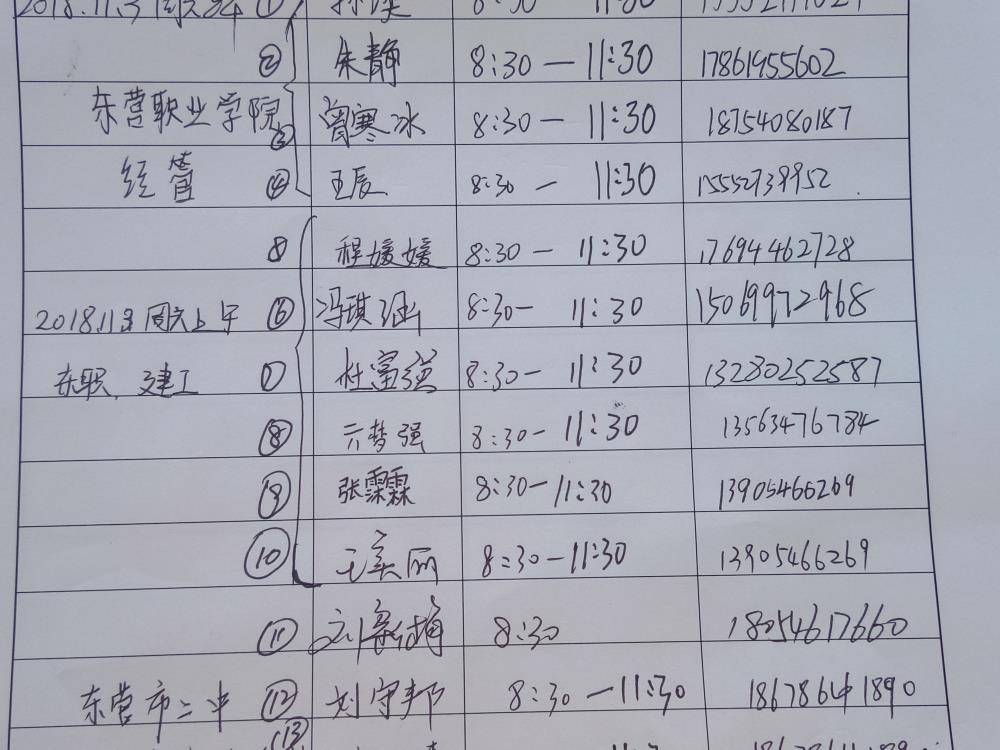 2018.11.3 ① 8:30 11:30
② 朱静 8:30 — 11:30 17861955602
东营职业学院 ③ 曾寒冰 8:30 — 11:30 18754080187
经管 ④ 王辰 8:30 — 11:30 15552739952
程媛媛 8:30 — 11:30 17694462728
2018.11.3 周六上午 ⑥ 冯琪涵 8:30 - 11:30 15069972968
东职、建工 ⑦ 杜富强 8:30 - 11:30 13280252587
⑧ 亓梦强 8:30 - 11:30 13563476784
⑨ 张霂霖 8:30 - 11:30 13905466269
⑩ 王美丽 8:30 - 11:30 13905466269
⑪ 刘 8:30 18054617660
东营市二中 ⑫ 刘守邦 8:30 — 11:30 18678641890
⑬